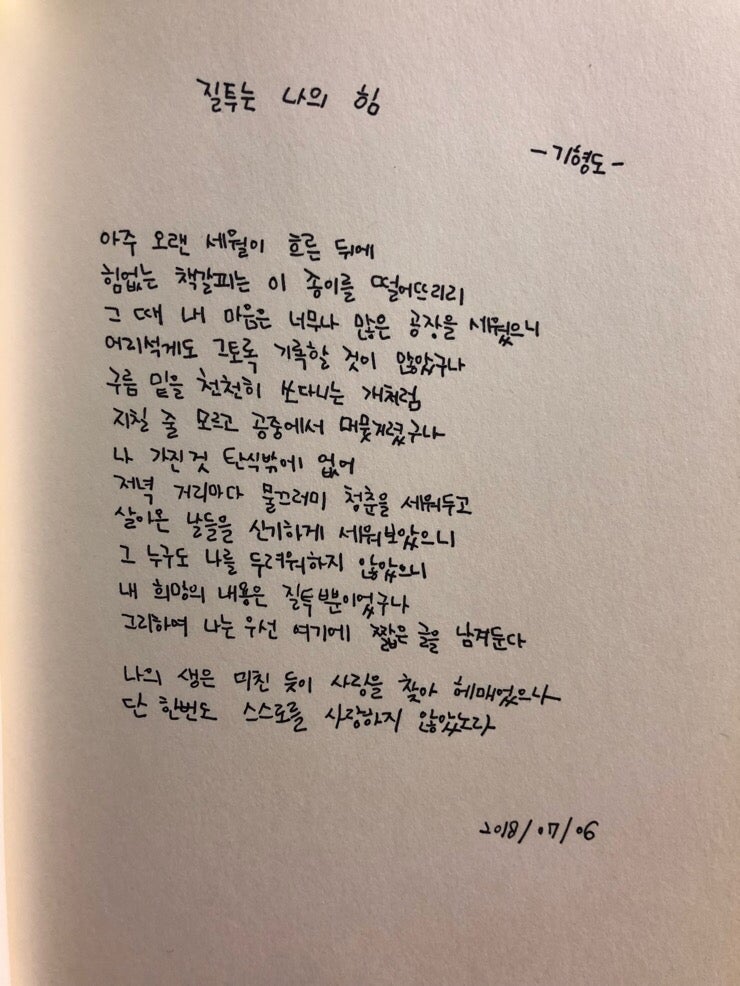 질투는 나의 힘
- 기형도 -
아주 오랜 세월이 흐른 뒤에
힘없는 책갈피는 이 종이를 떨어뜨리리
그 때 내 마음은 너무나 많은 공장을 세웠으니
어리석게도 그토록 기록할 것이 많았구나
구름 밑을 천천히 쏘다니는 개처럼
지칠 줄 모르고 공중에서 머뭇거렸구나
나 가진것 탄식밖에 없어
저녁 거리마다 물끄러미 청춘을 세워두고
살아온 날들을 신기하게 세워보았으니
그 누구도 나를 두려워하지 않았으니
내 희망의 내용은 질투뿐이었구나
그리하여 나는 우선 여기에 짧은 글을 남겨둔다
나의 생은 미친 듯이 사랑을 찾아 헤매었으나
단 한번도 스스로를 사랑하지 않았노라
2018/07/06